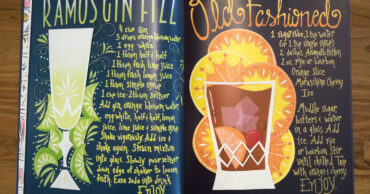 RAMOS GIN FIZZ
¼ cup Gin
3 drops orange blossom water
1 egg white
1 tbsm half & half
1 tbsm fresh lime juice
1 tbsm fresh lemon juice
1 tbsm simple syrup
1 cup ice 2tbsm seltzer
Add gin, orange blossom water
egg white, half & half, lemon
juice, lime juice & simple syrup
Shake vigorously Add ice &
shake again. Strain mixture
into glass. Slowly pour seltzer
down edge of shaker to loosen
froth. Ease soda into drink.
Enjoy
Old Fashioned
1 sugar cube, 1 tsp water
(or 1 tsp simple syrup)
2 dashes Angostura Bitters
2 oz. rye or bourbon
Orange Slice
Maraschino Cherry
Ice
Muddle sugar
bitters & water
in a glass. Add
ice. Add rye
or bourbon. Stir
until chilled. Top
with orange & cherry.
ENJOY